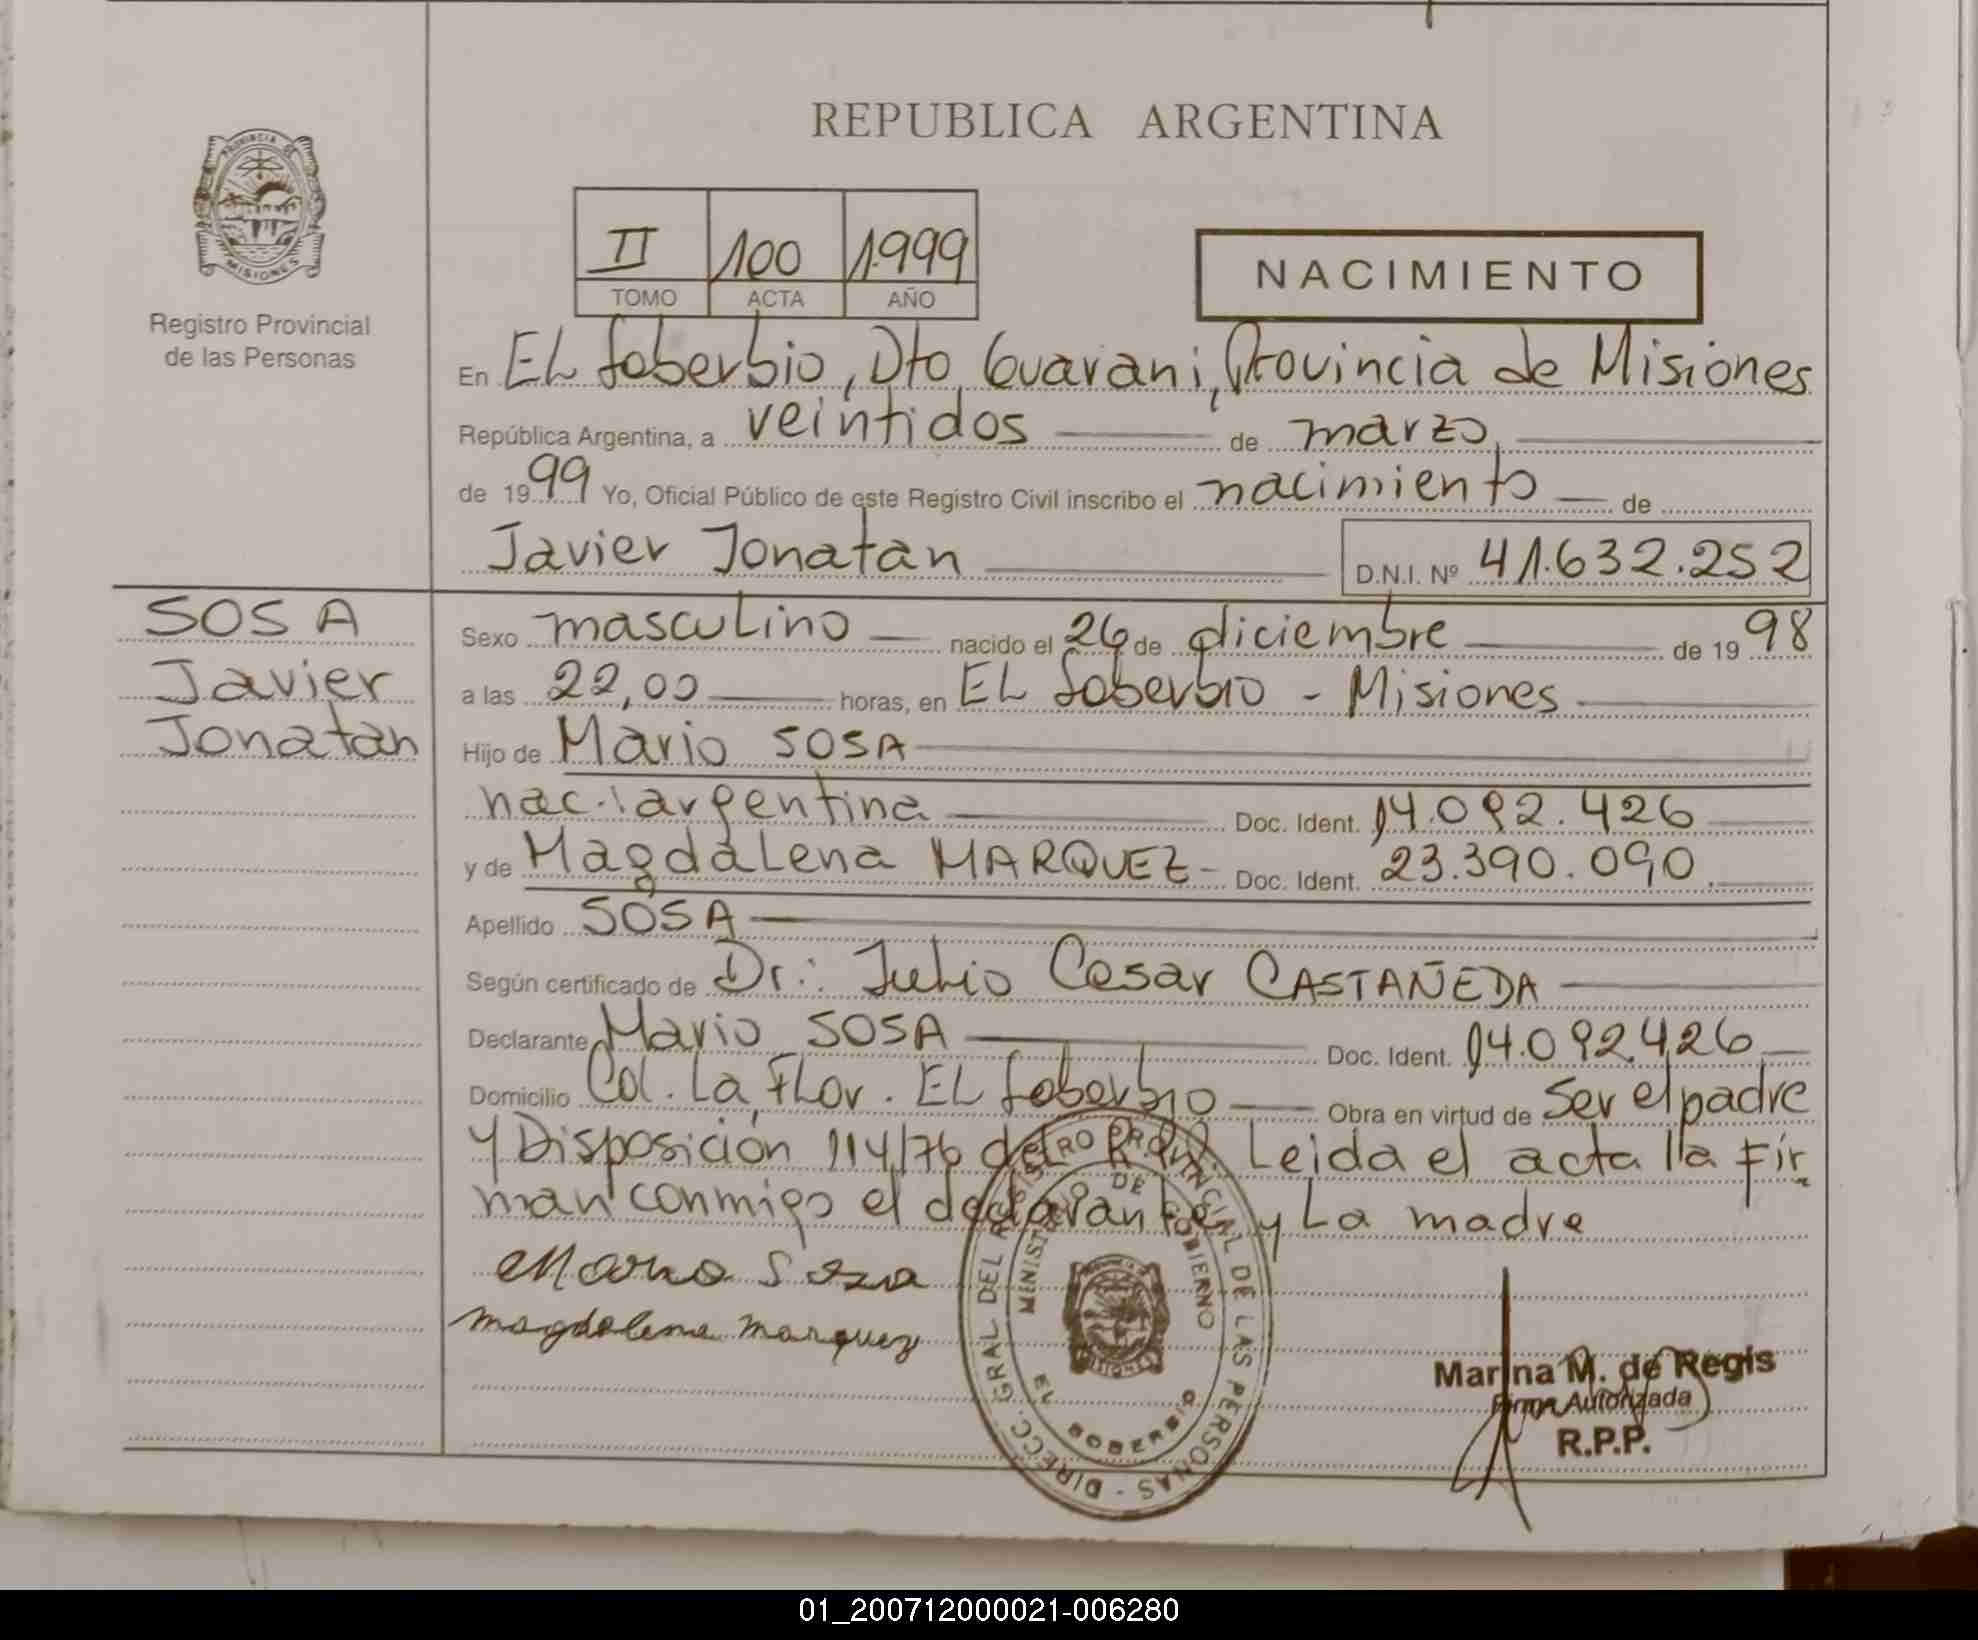 REPUBLICA ARGENTINA
PROVINCIA DE
MISIONES
Registro Provincial
de las Personas
II 100 1999
TOMO ACTA AÑO
NACIMIENTO
En EL Soberbio, Dto Guarani, Provincia de Misiones
República Argentina, a veintidos de marzo,
de 1999 Yo, Oficial Público de este Registro Civil inscribo el nacimiento de
Javier Jonatan D.N.I. Nº 41.632.252
SOSA
Javier
Jonatan
Sexo masculino nacido el 26 de diciembre de 1998
a las 22,00 horas, en EL Soberbio - Misiones
Hijo de Mario SOSA
nac. argentina Doc. Ident. 14.092.426
y de Magdalena MARQUEZ - Doc. Ident. 23.390.090
Apellido SOSA
Según certificado de Dr.: Julio Cesar CASTAÑEDA
Declarante Mario SOSA Doc. Ident. 14.092.426
Domicilio Col. La Flor. EL Soberbio Obra en virtud de ser el padre
y Disposición 114/76 del Leida el acta la fir
man conmigo el declarante y La madre
Mario Soza
magdalena marquez
DIRECC. GRAL DEL REGISTRO PROVINCIAL DE LAS PERSONAS -
MINISTERIO DE GOBIERNO
EL SOBERBIO
MISIONES
Marina M. de Regis
Firma Autorizada
R.P.P.
01_200712000021-006280